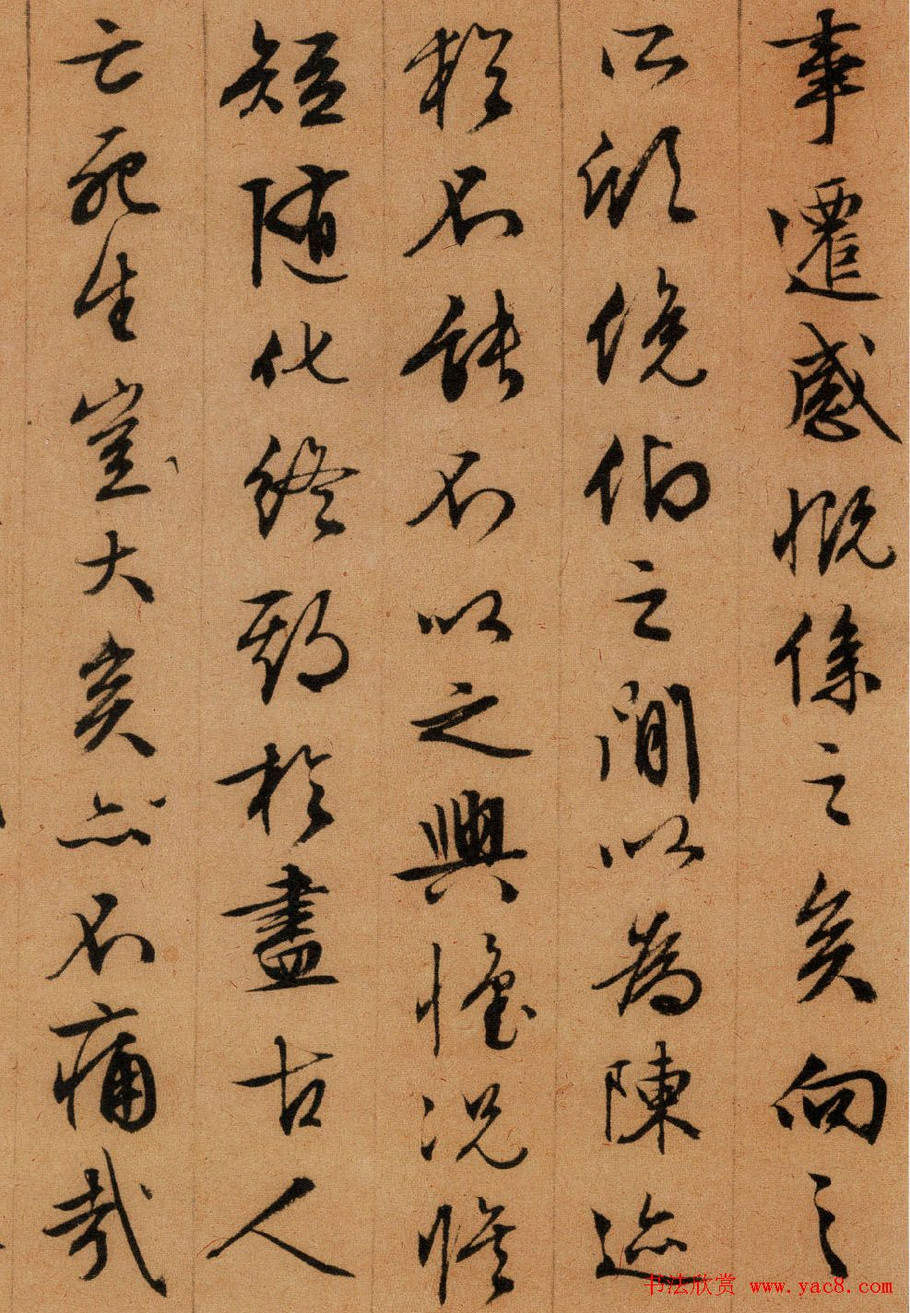 事遷感慨係之矣向之
所欣俛仰之間以為陳迹
不能不以之興懷況脩
短隨化終期於盡古人
云死生豈大矣亦不痛哉
书法欣赏 www.yac8.com